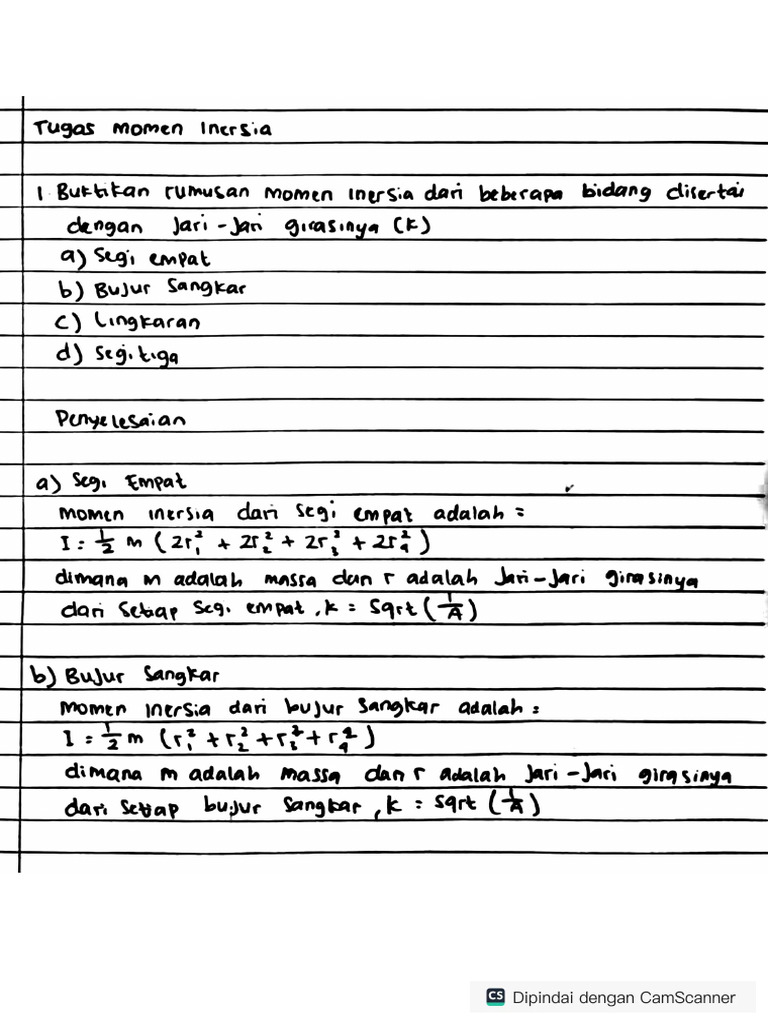 Tugas Momen Inersia
1. Buktikan rumusan momen inersia dari beberapa bidang disertai
dengan Jari-Jari girasinya (k)
a) Segi empat
b) Bujur Sangkar
c) Lingkaran
d) Segitiga
Penyelesaian
a) Segi Empat
Momen inersia dari segi empat adalah =
I = 1/2 m (2r₁² + 2r₂² + 2r₃² + 2r₄²)
dimana m adalah massa dan r adalah Jari-Jari girasinya
dari Setiap Segi empat, k = Sqrt (I/A)
b) Bujur Sangkar
Momen Inersia dari bujur Sangkar adalah :
I = 1/2 m (r₁² + r₂² + r₃² + r₄²)
dimana m adalah massa dan r adalah Jari-Jari girasinya
dari Setiap bujur Sangkar, k = Sqrt (I/A)
CS Dipindai dengan CamScanner